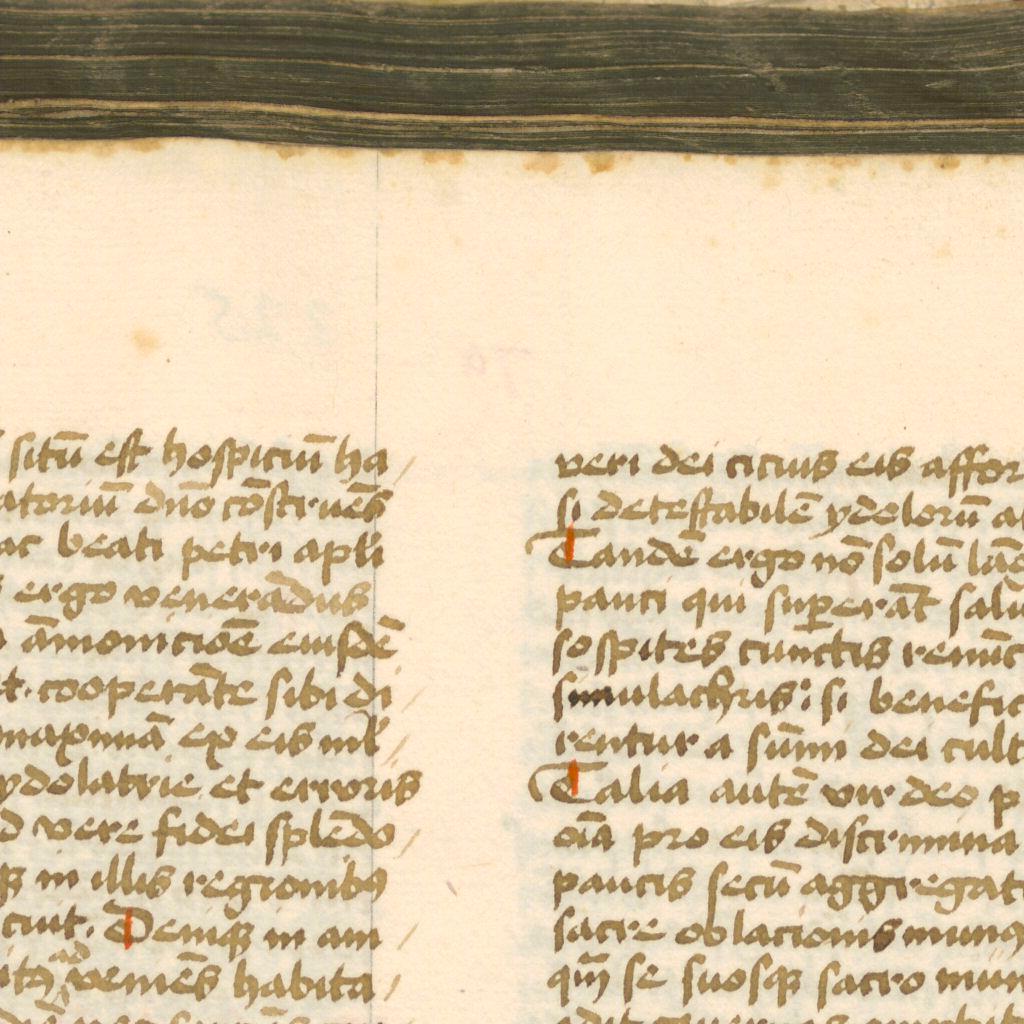 sitū est hospiciū ha
atoriū dn̄o cōstruēs
ac beati petri apl̄i
ergo venerādus
āmonicioē eiusdē
t. cooperāte sibi di
maximā ex eis ml̄
ydolatrie et erroris
d vere fidei splēdo
qꝫ in illis regionibꝫ
cuit. Deniqꝫ in am
ad veniēs habita
veri dei cicius eis affor
si detestabilē ydolorū a
Tandē ergo nō solū
pauci qui suꝑerāt salu
sospites cunctis renūc
simulachris: si benefic
rentur a sūmi dei cult
Talia autē vir deo p
oīa pro eis discrimina
paucis secū aggregat
sacre oblacionis munq
qm̄ se suosqꝫ sacro mun